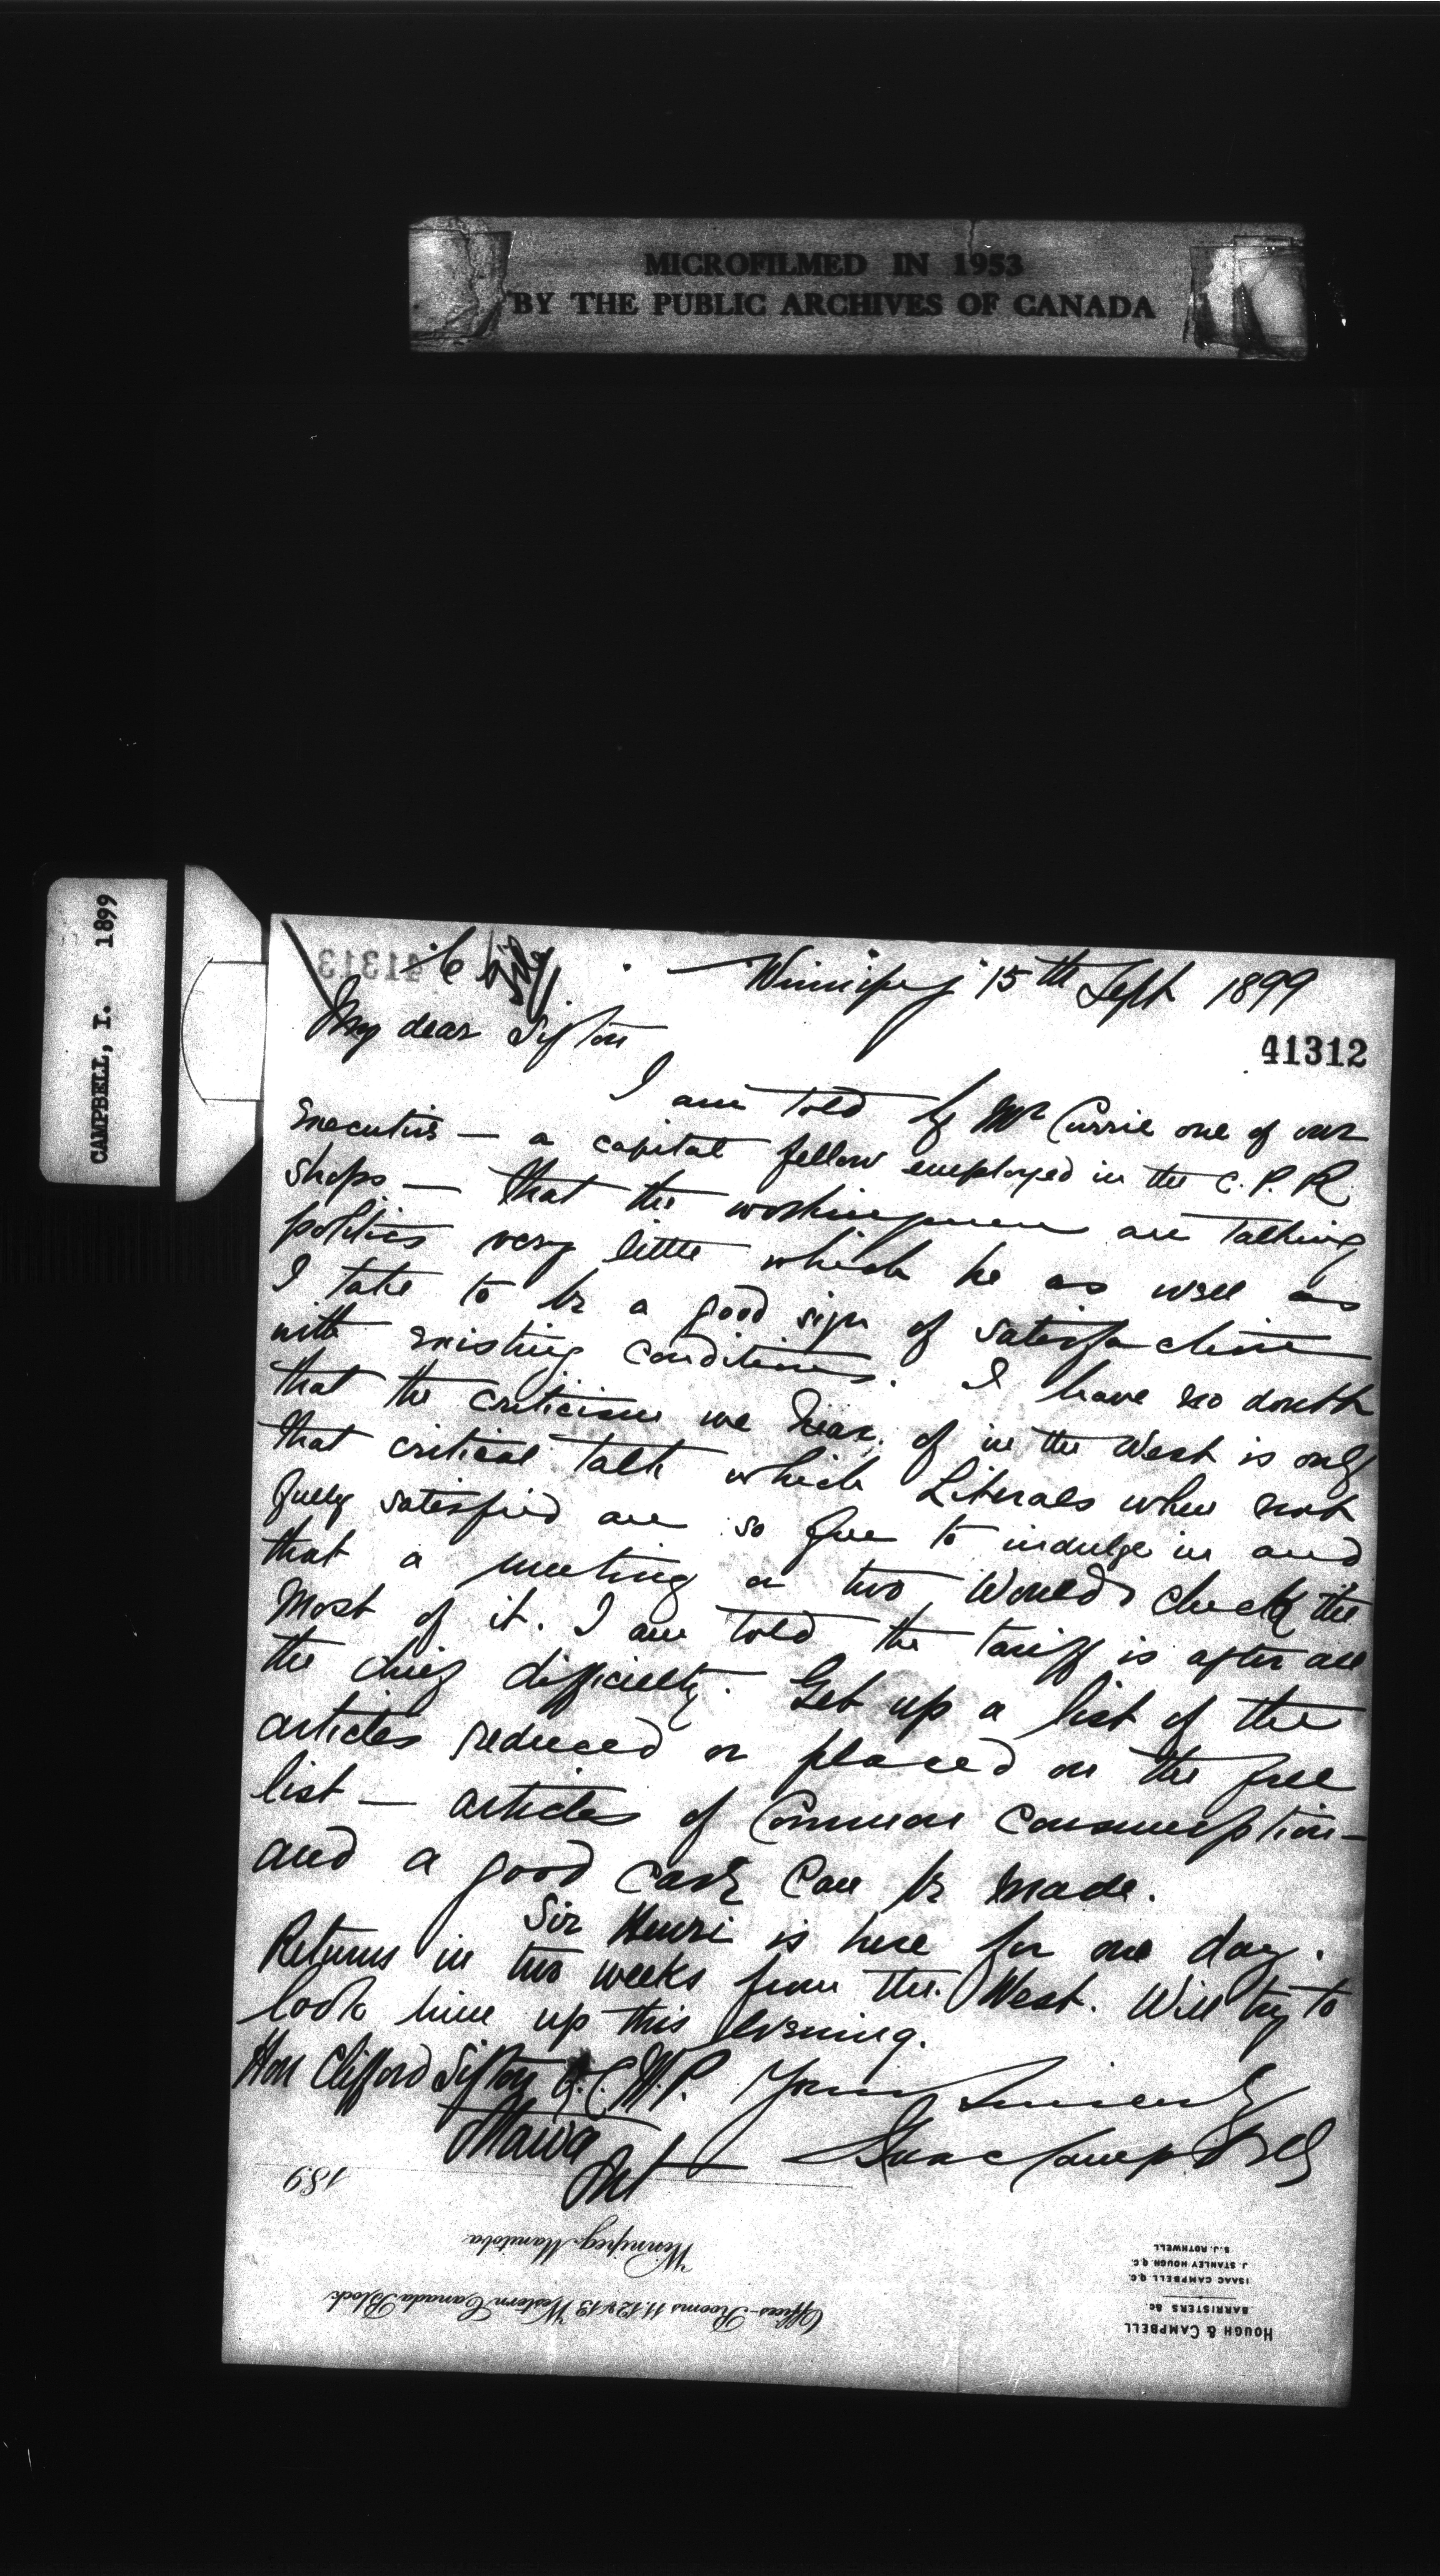 MICROFILMED IN 1953
BY THE PUBLIC ARCHIVES OF CANADA
CAMPBELL, I. 1899
41313
Winnipeg 15th Sept 1899
41312
My dear Sifton
I am told by Mr Currie one of our
executive — a capital fellow employed in the C.P.R.
shops — that the workingmen are talking
politics very little which he as well as
I take to be a good sign of satisfaction
with existing conditions. I have no doubt
that the criticism we hear of in the West is only
that critical talk which Liberals when not
fully satisfied are so free to indulge in and
that a meeting or two would check the
most of it. I am told the tariff is after all
the chief difficulty. Get up a list of the
articles reduced or placed on the free
list — articles of common consumption —
and a good case can be made.
Sir Henri is here for one day.
Returns in two weeks from the West. Will try to
look him up this evening.
Hon Clifford Sifton Q.C. M.P. Yours Sincerely
Ottawa Isaac Campbell
Ont
189
Winnipeg, Manitoba
Offices-Rooms 11.12 & 13 Western Canada Block
S.J. ROTHWELL
J. STANLEY HOUGH Q.C.
ISAAC CAMPBELL Q.C.
BARRISTERS &c
HOUGH & CAMPBELL